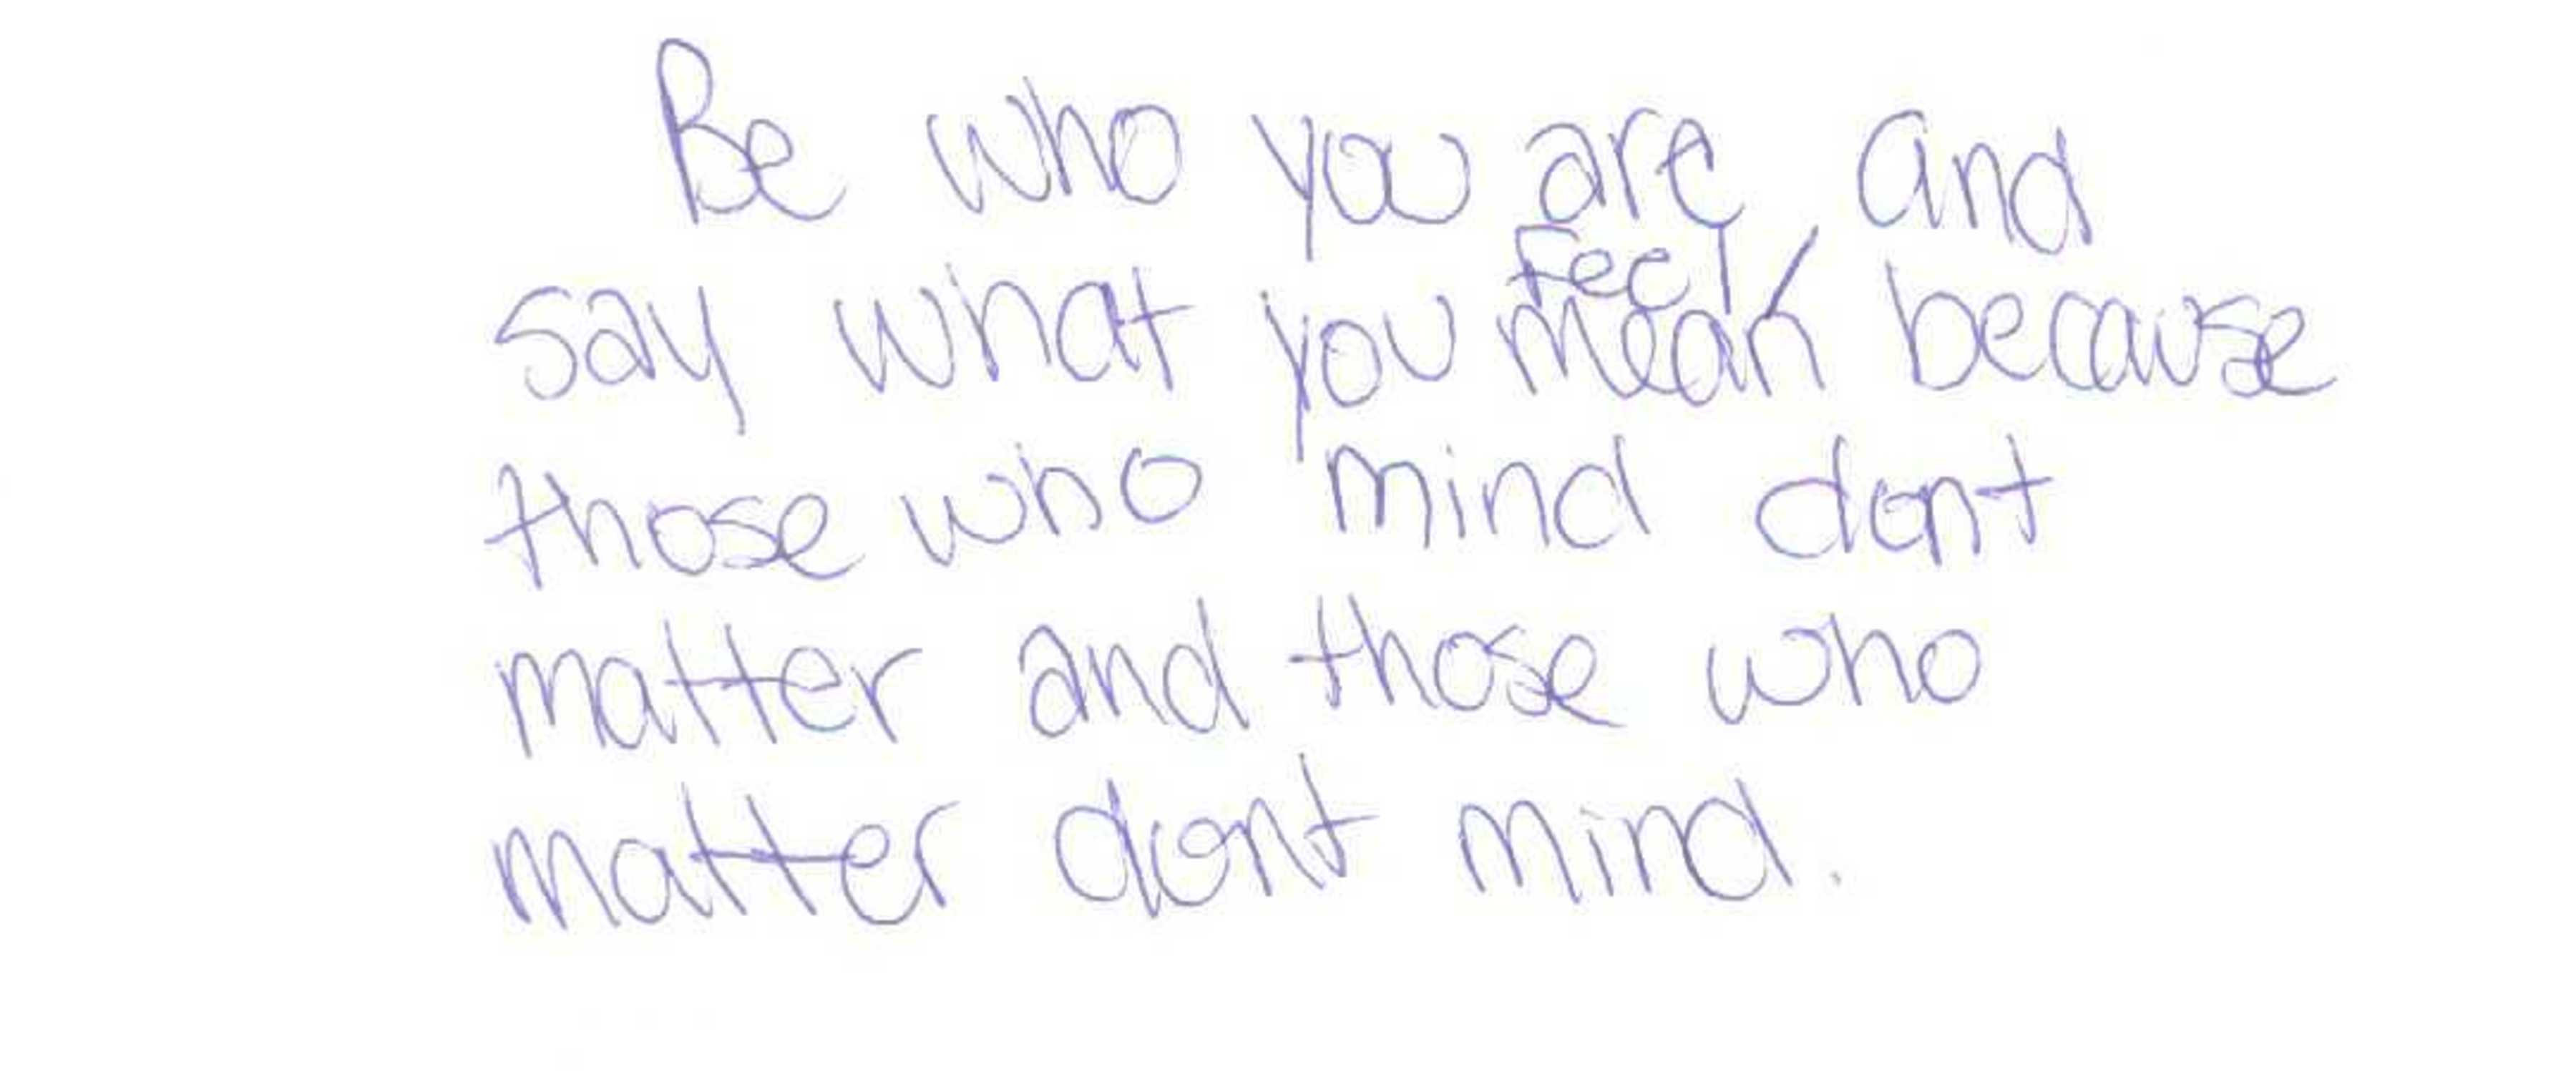 Be who you are and
Feel /
say what you mean because
those who mind dont
matter and those who
matter dont mind.